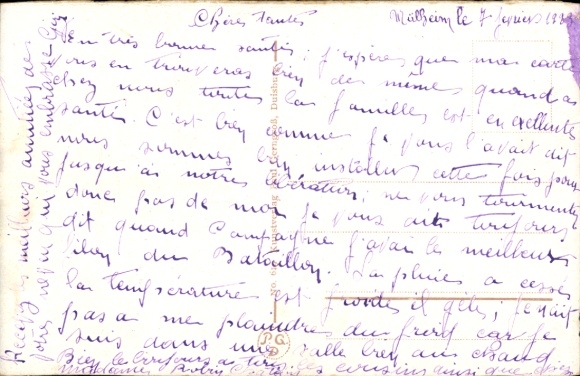 Chères tantes
Mülheim le 7 février 192
en très bonne santée; j'espères que ma carte
vous en trouveras bien de même quand a
chez nous toutes les familles est en excellente
santé. C'est bien comme je vous l'avait dit
nous sommes bien installer cette fois pour
jusqu'as notres libération; ne vous tourmente
donc pas de moi je vous ait toujours
dit quand Campagne j'ai le meilleur
filon du Bataillon. La pluies a cesser
la température est froides il gèle; je n'ait
pas a me plaindre du froid car je
suis dans une salle bien au chaud
Bien le bonjours a
Madames Robin les cousins ainsi que chez
Recevez meilleurs amitiées de
votre neveu qui vous embrasse
Duisburg